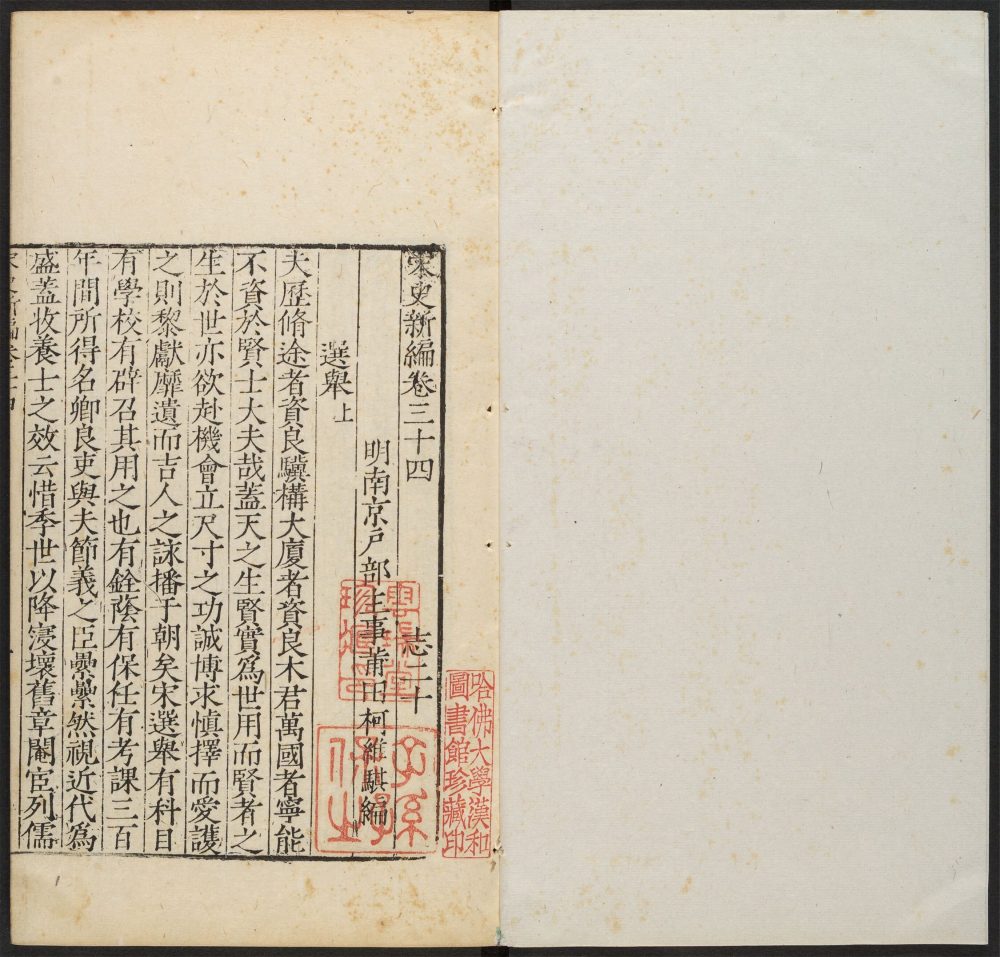 宋史新編卷三十四 志二十
明南京戶部主事莆田柯維騏編
選舉上
夫歷脩途者資良驥構大廈者資良木君萬國者寧能
不資於賢士大夫哉蓋天之生賢實爲世用而賢者之
生於世亦欲赴機會立尺寸之功誠博求慎擇而愛護
之則黎獻靡遺而吉人之詠播于朝矣宋選舉有科目
有學校有辟召其用之也有銓蔭有保任有考課三百
年間所得名卿良吏與夫節義之臣纍纍然視近代爲
盛蓋收養士之效云惜季世以降寖壞舊章閹宦列儒
宋史新編卷三十四
哈佛大學漢和
圖書館珍藏印
子孫
保之